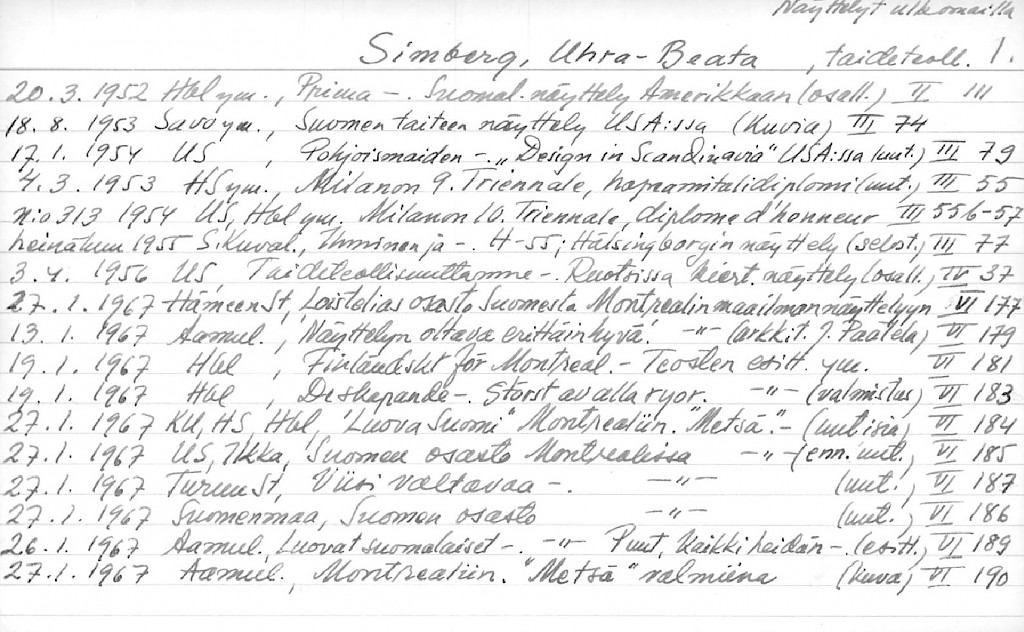 Näyttelyt ulkomailla
Simberg, Uhra-Beata , taideteoll. 1.
20.3.1952 Hbl ym., Prima -. Suomal. näyttely Amerikkaan (osall.) II 111
18.8.1953 Savo ym., Suomen taiteen näyttely USA:ssa (Kuvia) III 74
17.1.1954 US , Pohjoismaiden -. "Design in Scandinavia" USA:ssa (uut.) III 79
4.3.1953 HS ym., Milanon 9. Triennale, hopeamitalidiplomi (uut.) III 55
n:o 313 1954 US, Hbl ym. Milanon 10. Triennale, diplome d'honneur III 556-57
heinäkuu 1955 S.Kuval., Ihminen ja -. H-55; Hälsingborgin näyttely (selost.) III 77
3.4.1956 US, Taideteollisuuttamme -. Ruotsissa kiert. näyttely (osall.) IV 37
27.1.1967 HämeenSt, Loistelias osasto Suomesta Montrealin maailmannäyttelyyn VI 177
13.1.1967 Aamul., Näyttelyn oltava erittäin hyvä. -"- (arkkit. J. Paatela) VI 179
19.1.1967 Hbl , Finländskt för Montreal. - Teosten esitt. ym. VI 181
19.1.1967 Hbl , Deskapande -. Störst av alla ryor. -"- (valmistus) VI 183
27.1.1967 KU, HS, Hbl, 'Luova Suomi' Montrealiin. "Metsä". - (uutisia) VI 184
27.1.1967 US, Ilkka, Suomen osasto Montrealissa -"- (enn. uut.) VI 185
27.1.1967 TurunSt, Viisi valtavaa -. -"- (uut.) VI 187
27.1.1967 Suomenmaa, Suomen osasto -"- (uut.) VI 186
26.1.1967 Aamul., Luovat suomalaiset -. -"- Puut, kaikki heidän -. (esitt.) VI 189
27.1.1967 Aamul., Montrealiin. "Metsä" valmiina (kuva) VI 190